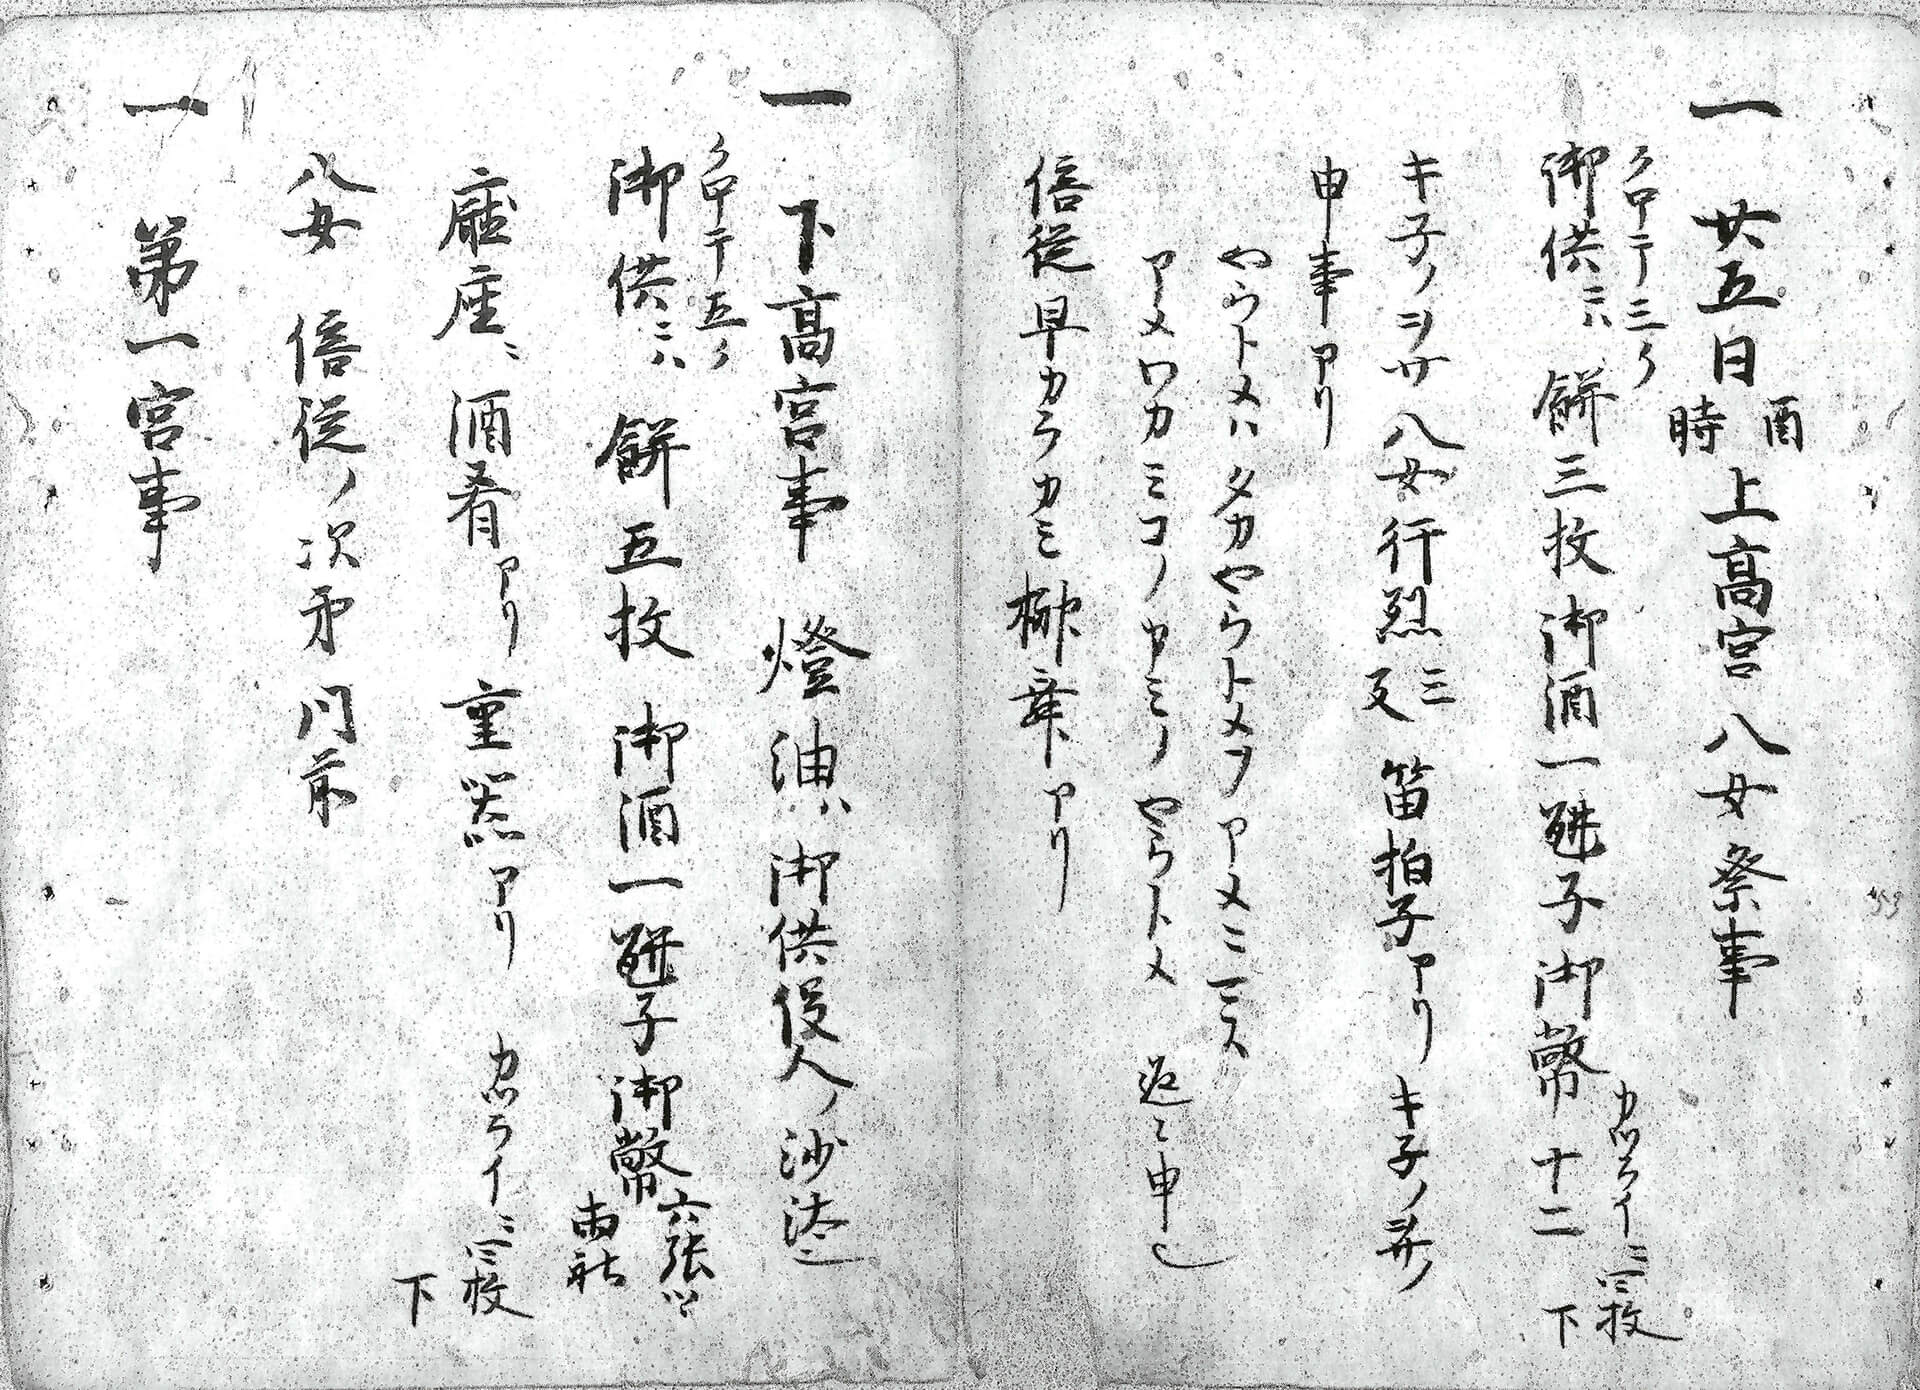 一 廿五日酉時上高宮八女祭事
クワテ三ツ
御供ニハ餅三枚御酒一瓶子御幣十二
カハライニ三枚下
キ子ノヲサ八女行烈三反笛拍子アリキ子ノヲサノ
申事アリ
やらトメハタカやらトメヲアメニマス
アメワカミコノカミノやらトメ 返ミ申
倍従早カラカミ榊舞アリ
一 下高宮事 燈油ハ御供役人ノ沙汰
クワテ五ツ
御供ニハ餅五枚 御酒一瓶子御幣六張ツヽ両社
廳座ニ酒肴アリ重器アリ
カハライニ三枚下
八女 倍従ノ次第 門前
一 第一宮事